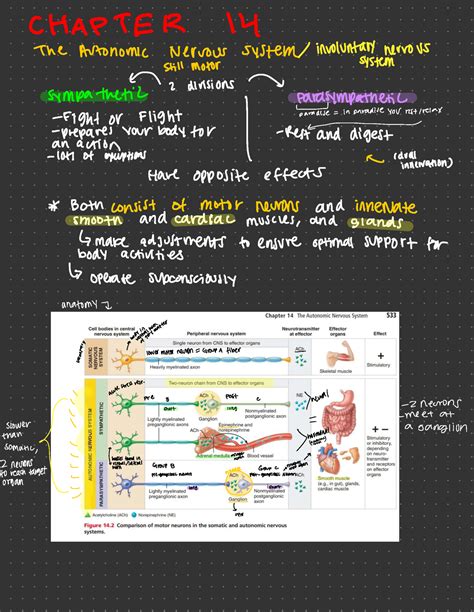 CHAPTER 14
The Autonomic Nervous System/ involuntary nervous system
still motor
2 divisions
Sympathetic
-Fight or Flight
-prepares your body for an action
-lots of
Parasympathetic
paradise = in paradise you rest/relax
-Rest and digest
(dual innervation)
Have opposite effects
* Both consist of motor neurons and innervate
smooth and cardiac muscles, and glands
↳ make adjustments to ensure optimal support for
body activities
↳ operate subconsciously
anatomy
Chapter 14 The Autonomic Nervous System 533
Cell bodies in central nervous system
Peripheral nervous system
Neurotransmitter at effector
Effector organs
Effect
SOMATIC NERVOUS SYSTEM
Single neuron from CNS to effector organs
= Group A fiber
Heavily myelinated axon
ACh
Skeletal muscle
+
Stimulatory
AUTONOMIC NERVOUS SYSTEM
SYMPATHETIC
Two-neuron chain from CNS to effector organs
pre
short
ACh
post
long
NE
Lightly myelinated preganglionic axons
Ganglion
Nonmyelinated postganglionic axon
Epinephrine and norepinephrine
ACh
Adrenal medulla
Blood vessel
+ −
Stimulatory or inhibitory, depending on neurotransmitter and receptors on effector organs
PARASYMPATHETIC
Group B
Group C
ACh
ACh
Lightly myelinated preganglionic axon
Ganglion
Nonmyelinated postganglionic axon
Smooth muscle (e.g., in gut), glands, cardiac muscle
Acetylcholine (ACh)
Norepinephrine (NE)
Figure 14.2 Comparison of motor neurons in the somatic and autonomic nervous
systems.
slower
than
somatic,
2 neurons
to reach target
organ
-2 neurons
meet at
a ganglion